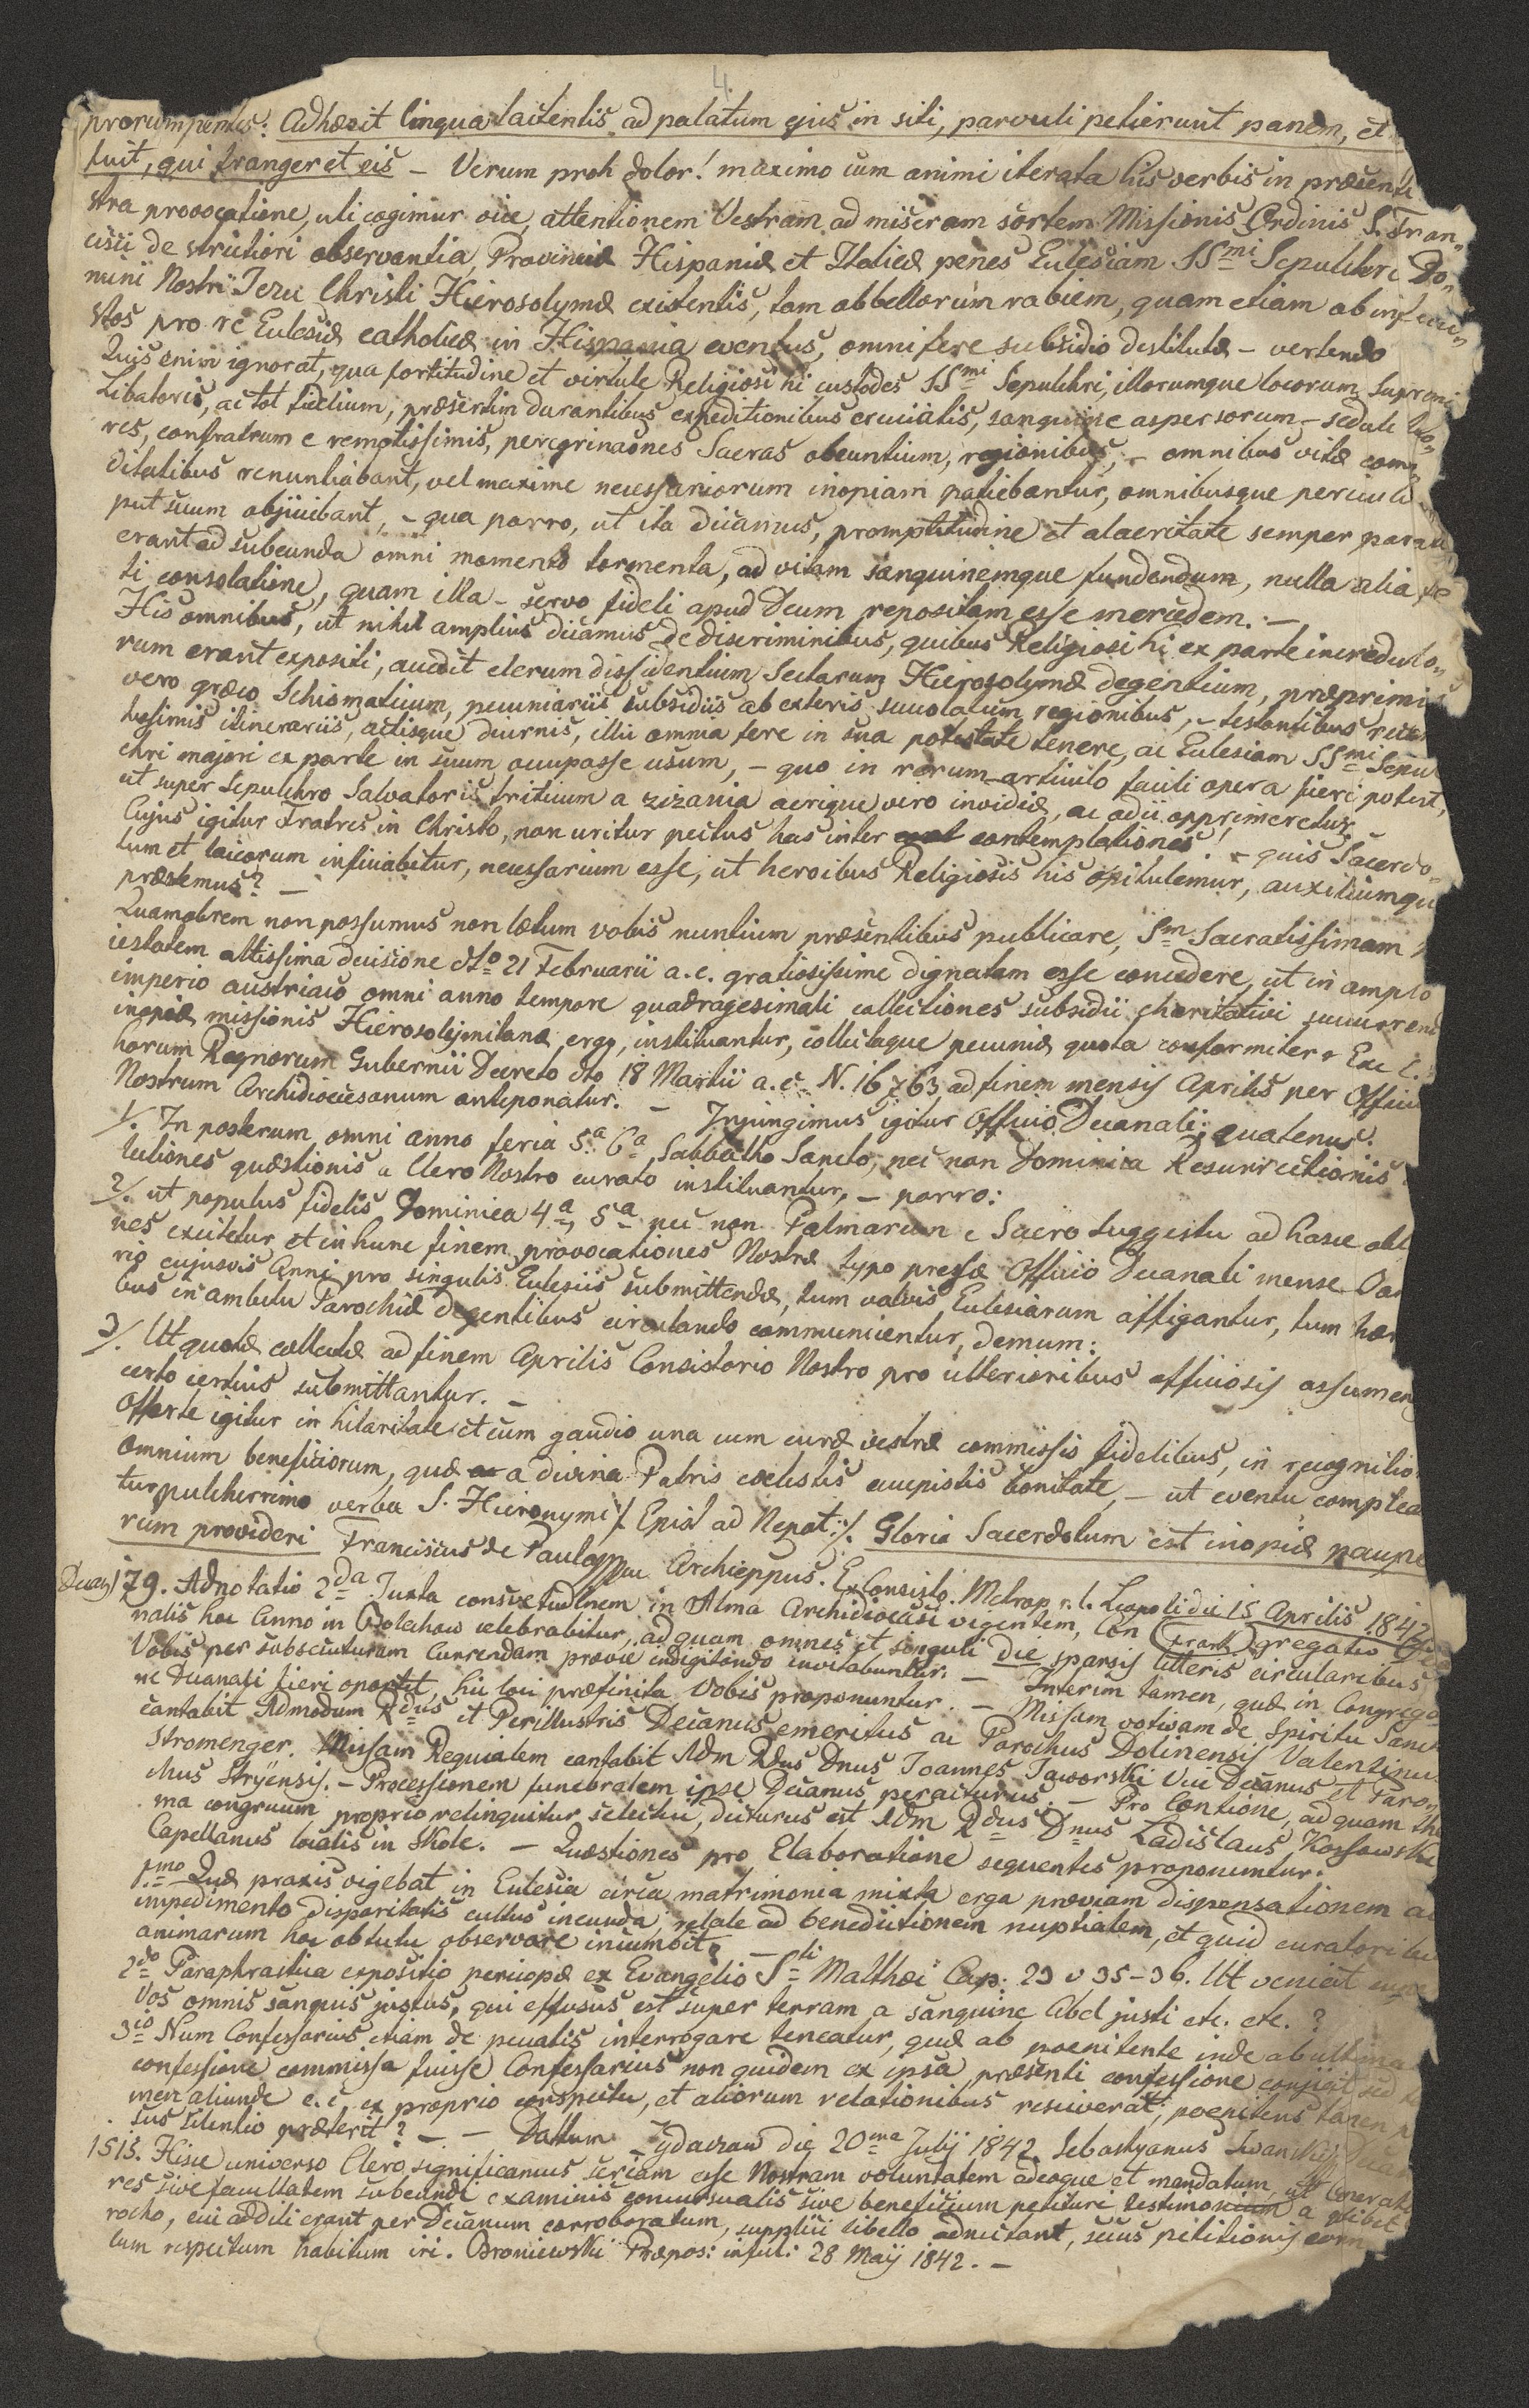 4.
prorumpentis: Adhæsit lingua lactentis ad palatum ejus in siti, parvuli petierunt panem, et
tuit, qui frangeret eis – Verum proh dolor! maximo cum animi iterata his verbis in præsenti
stra provocatione, uti cogimur vice, attentionem Vestram ad miseram sortem Missionis Ordinis S. Fran„
cisci de strictiori observantia, Provinciæ Hispaniæ et Italiæ penes Ecclesiam SSmi Sepulchri Do„
mini Nostri Jezu Christi Hierosolymæ existentis, tam ob bellorum rabiem, quam etiam ob infau„
stos pro re Ecclesiæ catholicæ in Hispania eventus, omni fere subsidio destitutæ – vertendo
Quis enim ignorat, qua fortitudine et virtute Religiosi hi custodes SSmi Sepulchri, illorumque locorum, Supremi
Libatoris, ac tot fidelium, præsertim durantibus expeditionibus cruciatis, sanguine aspersorum – sedule
res, confratrum e remotissimis, peregrinaones Sacras obeuntium, regionibus, – omnibus vitæ com
ditatibus renuntiabant, vel maxime necessariorum inopiam patiebantur, omnibusque periculis
put suum objiciebant, – qua porro, ut ita dicamus, promptitudine et alacritate semper parati
erant ad subeunda omni momento tormenta, ad vitam sanguinemque fundendum, nulla alia
ti consolatione, quam illa – servo fideli apud Deum repositam esse mercedem. –
His omnibus, ut nihil amplius dicamus de discriminibus, quibus Religiosi hi ex parte incredulo„
rum erant expositi, accedit clerum dissidentium Sectarum Hierosolymæ degentium, præprimis
vero græco Schismaticum, pecuniariis subsidiis ab exteris succolatum regionibus, – testantibus recen
tissimis itinerariis, actisque diurnis, illic omnia fere in sua potestate tenere, ac Ecclesiam SSmi Sepu
chri majori ex parte in suum occupasse usum, – quo in rerum articulo facili opera fieri potest,
ut super Sepulchro Salvatoris triticum a zizania acrique vero invidiæ, ac odii opprimeretur.
Cujus igitur Fratres in Christo, non uritur pectus has inter contemplationes! – quis Sacerdo„
tum et laicorum inficiabitur, necessarium esse, ut heroibus Religiosis his opitulemur, auxiliumque
præstemus? –
Quamobrem non possumus non lætum vobis nuntium præsentibus publicare, Sm Sacratissimam
iestatem altissima decisione dto 21 Februarii a. c. gratiosissime dignatam esse concedere, ut in amplo
imperio austriaco omni anno tempore quadragesimali collectiones subsidii charitativi succurrendæ
inopiæ missionis Hierosolymitanæ, ergo, instituantur, collectaque pecuniæ quota conformiter Exc
horum Regnorum Gubernii Decreto dto 18 Martii a. c. N. 16763 ad finem mensis Aprilis per Officiu
Nostrum Archidiœcesanum anteponatur. – Injungimus igitur Officio Decanali; quatenus:
1/. In posterum omni anno feria 5a 6a Sabbatho Sancto, nec non Dominica Resurrectionis
lectiones quæstionis a Clero Nostro curato instituantur, – porro:
2/. ut populus fidelis Dominica 4a, 5a nec non Palmarum e Sacro Suggestu ad hasce
nes excitetur et in hunc finem provocationes Nostræ typo pressæ Officio Decanali mense
rio cujusvis Anni pro singulis Ecclesiis submittendæ, tum valvis Ecclesiarum affigantur, tum
bus in ambitu Parochiæ degentibus circulando communicentur, demum:
3/. Ut quotæ collectæ ad finem Aprilis Consistorio Nostro pro ulterioribus officiosis assumen
certo certius submittantur. –
Offerte igitur in hilaritate et cum gaudio una cum curæ vestræ commissis fidelibus, in recognitio
omnium beneficiorum, quæ a divina Patris cœlestis accepistis bonitate, – ut eventu complea
tur pulcherrimo verba S. Hieronymi /. Epist ad Nepot: /. Gloria Sacerdotum est inopiæ paupe
rum provideri Franciscus de Paula Archieppus. Ex Consisto. Metrop. r. l. Leopoli die 15 Aprilis 1842
Decan 179. Adnotatio 2da Juxta consvetudinem in Alma Archidiœcesi vigentem, Con gregatio
nalis hoc Anno in Bolechow celebrabitur, ad quam omnes et singuli die sparsis litteris circularibus
Vobis per subsecuturam Currendam prævie indigitando invitabuntur. – Interim tamen, quæ in Congrega
ne Decanali fieri oportet, hic loci præfinita Vobis proponuntur. – Missam votivam de Spiritu Sanct
cantabit Admodum Rdus et Perillustris Decanus emeritus ac Parochus Dolinensis Valentinus
Stromenger. Missam Requialem cantabit Adm Rdus Dnus Joannes Jaworski Vice Decanus et Paro„
chus Stryensis. – Processionem funebralem ipse Decanus peracturus. – Pro Contione, ad quam the
ma congruum proprio relinquitur selectu, dicturus est Adm Rdus Dnus Ladislaus Kossowski
Capellanus localis in Skole. – Quæstiones pro Elaboratione sequentes proponuntur:
1mo Quæ praxis vigebat in Ecclesia circa matrimonia mixta erga præviam dispensationem
impedimento disparitatis cultus ineunda, relate ad benedictionem nuptialem, et quid curatori
animarum hoc obtutu observare incumbit? –
2do Paraphrastica expositio pericopæ ex Evangelio Sti Matthæi Cap. 23 v 35–36. Ut veniat
Vos omnis sanguis justus, qui effusus est super terram a sanguine Abel justi etc. etc. ?
3io Num Confessarius etiam de peccatis interrogare teneatur, quæ ab pœnitente inde ab ultima
confessione commissa fuisse Confessarius non quidem ex ipsa præsenti confessione conjicit sed
men aliunde e. c. ex proprio conspectu, et aliorum relationibus resciverat; pœnitens tamen
sus silentio præterit? – – Dattum Żydaczow die 20ma Julij 1842. Sebastyanus
1515. Hisce universo Clero significamus seriam esse Nostram voluntatem adeoque et mandatum, ut
res sive facultatem subeundi examinis concursualis sive beneficium petituri testimonium a
rocho, cui additi erant per Decanum corroboratum, supplici libello adnectant, secus petitionis
lum respectum habitum iri. Broniewski Præpos: inful: 28 Maij 1842. –